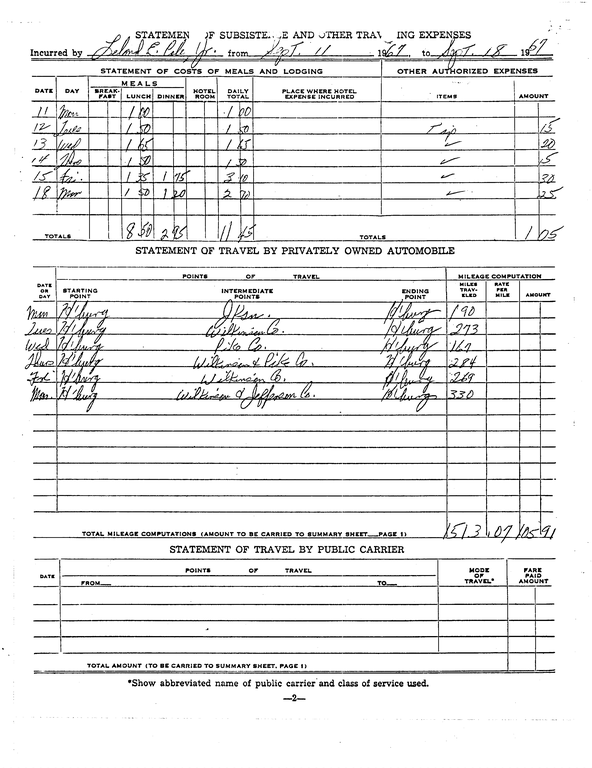 STATEMEN OF SUBSISTE E AND OTHER TRAV ING EXPENSES
Incurred by Leland E. Cole Jr. from Sept. 11 1967 to Sept. 18 1967
STATEMENT OF COSTS OF MEALS AND LODGING OTHER AUTHORIZED EXPENSES
MEALS
DATE DAY BREAK-FAST LUNCH DINNER HOTEL ROOM DAILY TOTAL PLACE WHERE HOTEL EXPENSE INCURRED ITEMS AMOUNT
11 Mon 1 00 1 00
12 Tues 1 50 1 50 Tip 15
13 Wed 1 65 1 65 ✓ 20
14 Thurs 1 50 1 50 ✓ 15
15 Fri. 1 35 1 75 3 10 ✓ 30
18 Mon 1 50 1 20 2 70 ✓ 25
TOTALS 8 50 2 95 11 45 TOTALS 1 05
STATEMENT OF TRAVEL BY PRIVATELY OWNED AUTOMOBILE
POINTS OF TRAVEL MILEAGE COMPUTATION
DATE OR DAY STARTING POINT INTERMEDIATE POINTS ENDING POINT MILES TRAV-ELED RATE PER MILE AMOUNT
Mon H'burg Jksn. H'burg 190
Tues H'burg Wilkinson Co. H'burg 273
Wed H'burg Pike Co. H'burg 167
Thurs H'burg Wilkinson & Pike Co. H'burg 284
Fri H'burg Wilkinson Co. H'burg 269
Mon. H'burg Wilkinson & Jefferson Co. H'burg 330
TOTAL MILEAGE COMPUTATIONS (AMOUNT TO BE CARRIED TO SUMMARY SHEET PAGE 1) 1513 .07 105 91
STATEMENT OF TRAVEL BY PUBLIC CARRIER
DATE POINTS OF TRAVEL MODE OF TRAVEL* FARE PAID AMOUNT
FROM TO
TOTAL AMOUNT (TO BE CARRIED TO SUMMARY SHEET, PAGE 1)
*Show abbreviated name of public carrier and class of service used.
—2—